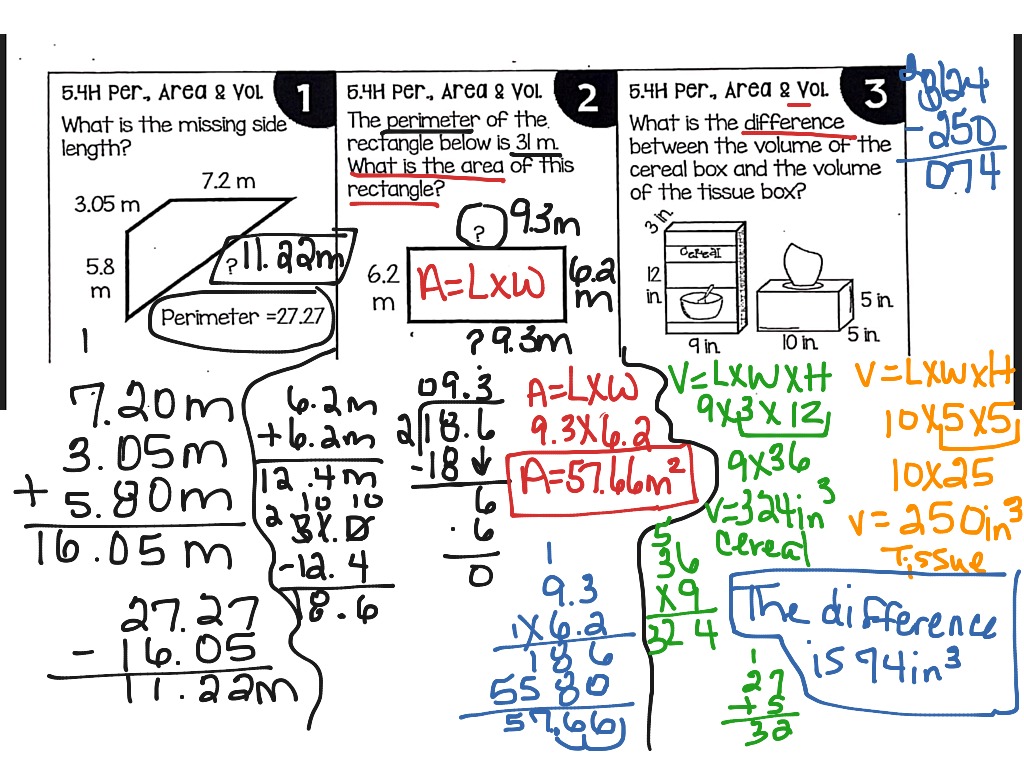 5.4H Per., Area & Vol.
1
What is the missing side
length?
7.2 m
3.05 m
5.8
m
? 11.22m
Perimeter =27.27
5.4H Per., Area & Vol.
2
The perimeter of the
rectangle below is 31 m.
What is the area of this
rectangle?
? 9.3m
6.2
m
A=LXW
6.2
m
? 9.3m
5.4H Per., Area & Vol.
3
What is the difference
between the volume of the
cereal box and the volume
of the tissue box?
3 in
cereal
12
in
9 in
5 in
5 in
10 in
-250
074
1
7.20m
3.05m
+ 5.80m
16.05 m
27.27
- 16.05
11.22m
6.2m
+6.2m
12.4m
10 10
2 31.0
-12.4
18.6
09.3
2 18.6
-18
6
. 6
0
A=LXW
9.3X6.2
A=57.66m²
1
9.3
1X6.2
186
5580
57.66
V=LXWXH
9X3X12
9X36
V=324in³
Cereal
5
36
X9
324
1
27
+5
32
V=LXWXH
10X5X5
10X25
V=250in³
Tissue
The difference
is 74in³